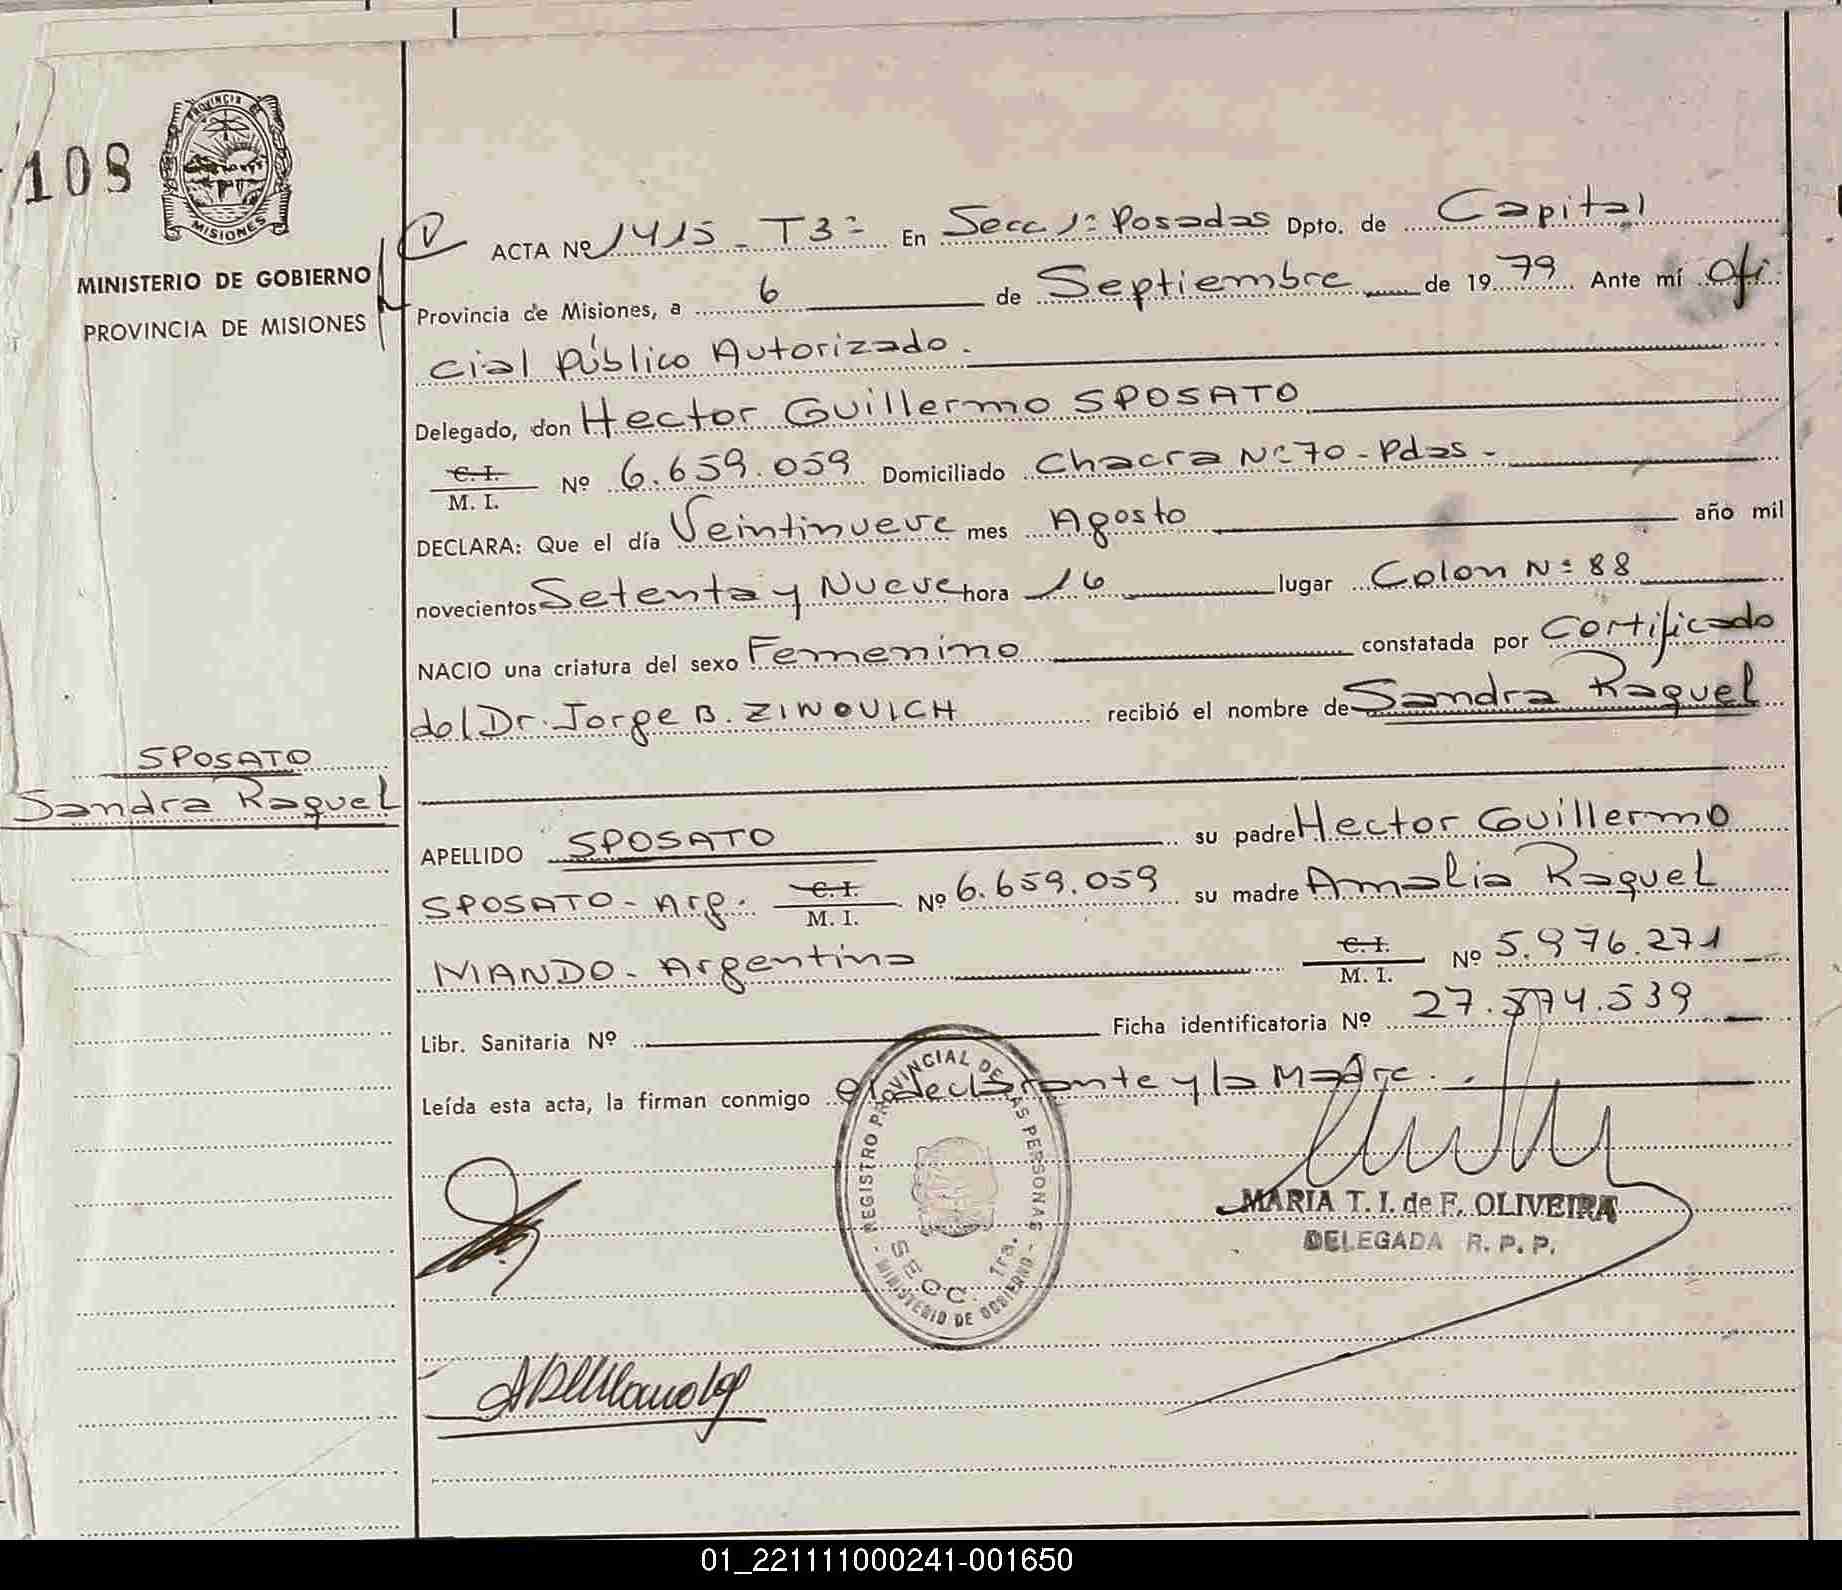 108
PROVINCIA DE
MISIONES
MINISTERIO DE GOBIERNO
PROVINCIA DE MISIONES
SPOSATO
Sandra Raquel
ACTA Nº 1415 - T3º En Secc 1º Posadas Dpto. de Capital
Provincia de Misiones, a 6 de Septiembre de 1979 Ante mí Ofi
cial Público Autorizado.
Delegado, don Hector Guillermo SPOSATO
C. I. / M. I. Nº 6.659.059 Domiciliado Chacra Nº 70 - Pdas -
DECLARA: Que el día Veintinueve mes Agosto año mil
novecientos Setenta y Nueve hora 16 lugar Colon Nº 88
NACIO una criatura del sexo Femenino constatada por Certificado
del Dr. Jorge B. ZINOVICH recibió el nombre de Sandra Raquel
APELLIDO SPOSATO su padre Hector Guillermo
SPOSATO - Arg. C. I. / M. I. Nº 6.659.059 su madre Amalia Raquel
Argentina C. I. / M. I. Nº 5.976.271
Libr. Sanitaria Nº Ficha identificatoria Nº 27.574.539
Leída esta acta, la firman conmigo el declarante y la Madre.
REGISTRO PROVINCIAL DE LAS PERSONAS
SECC. 1ra.
- MINISTERIO DE GOBIERNO -
MARIA T. I. de F. OLIVEIRA
DELEGADA R. P. P.
01_221111000241-001650